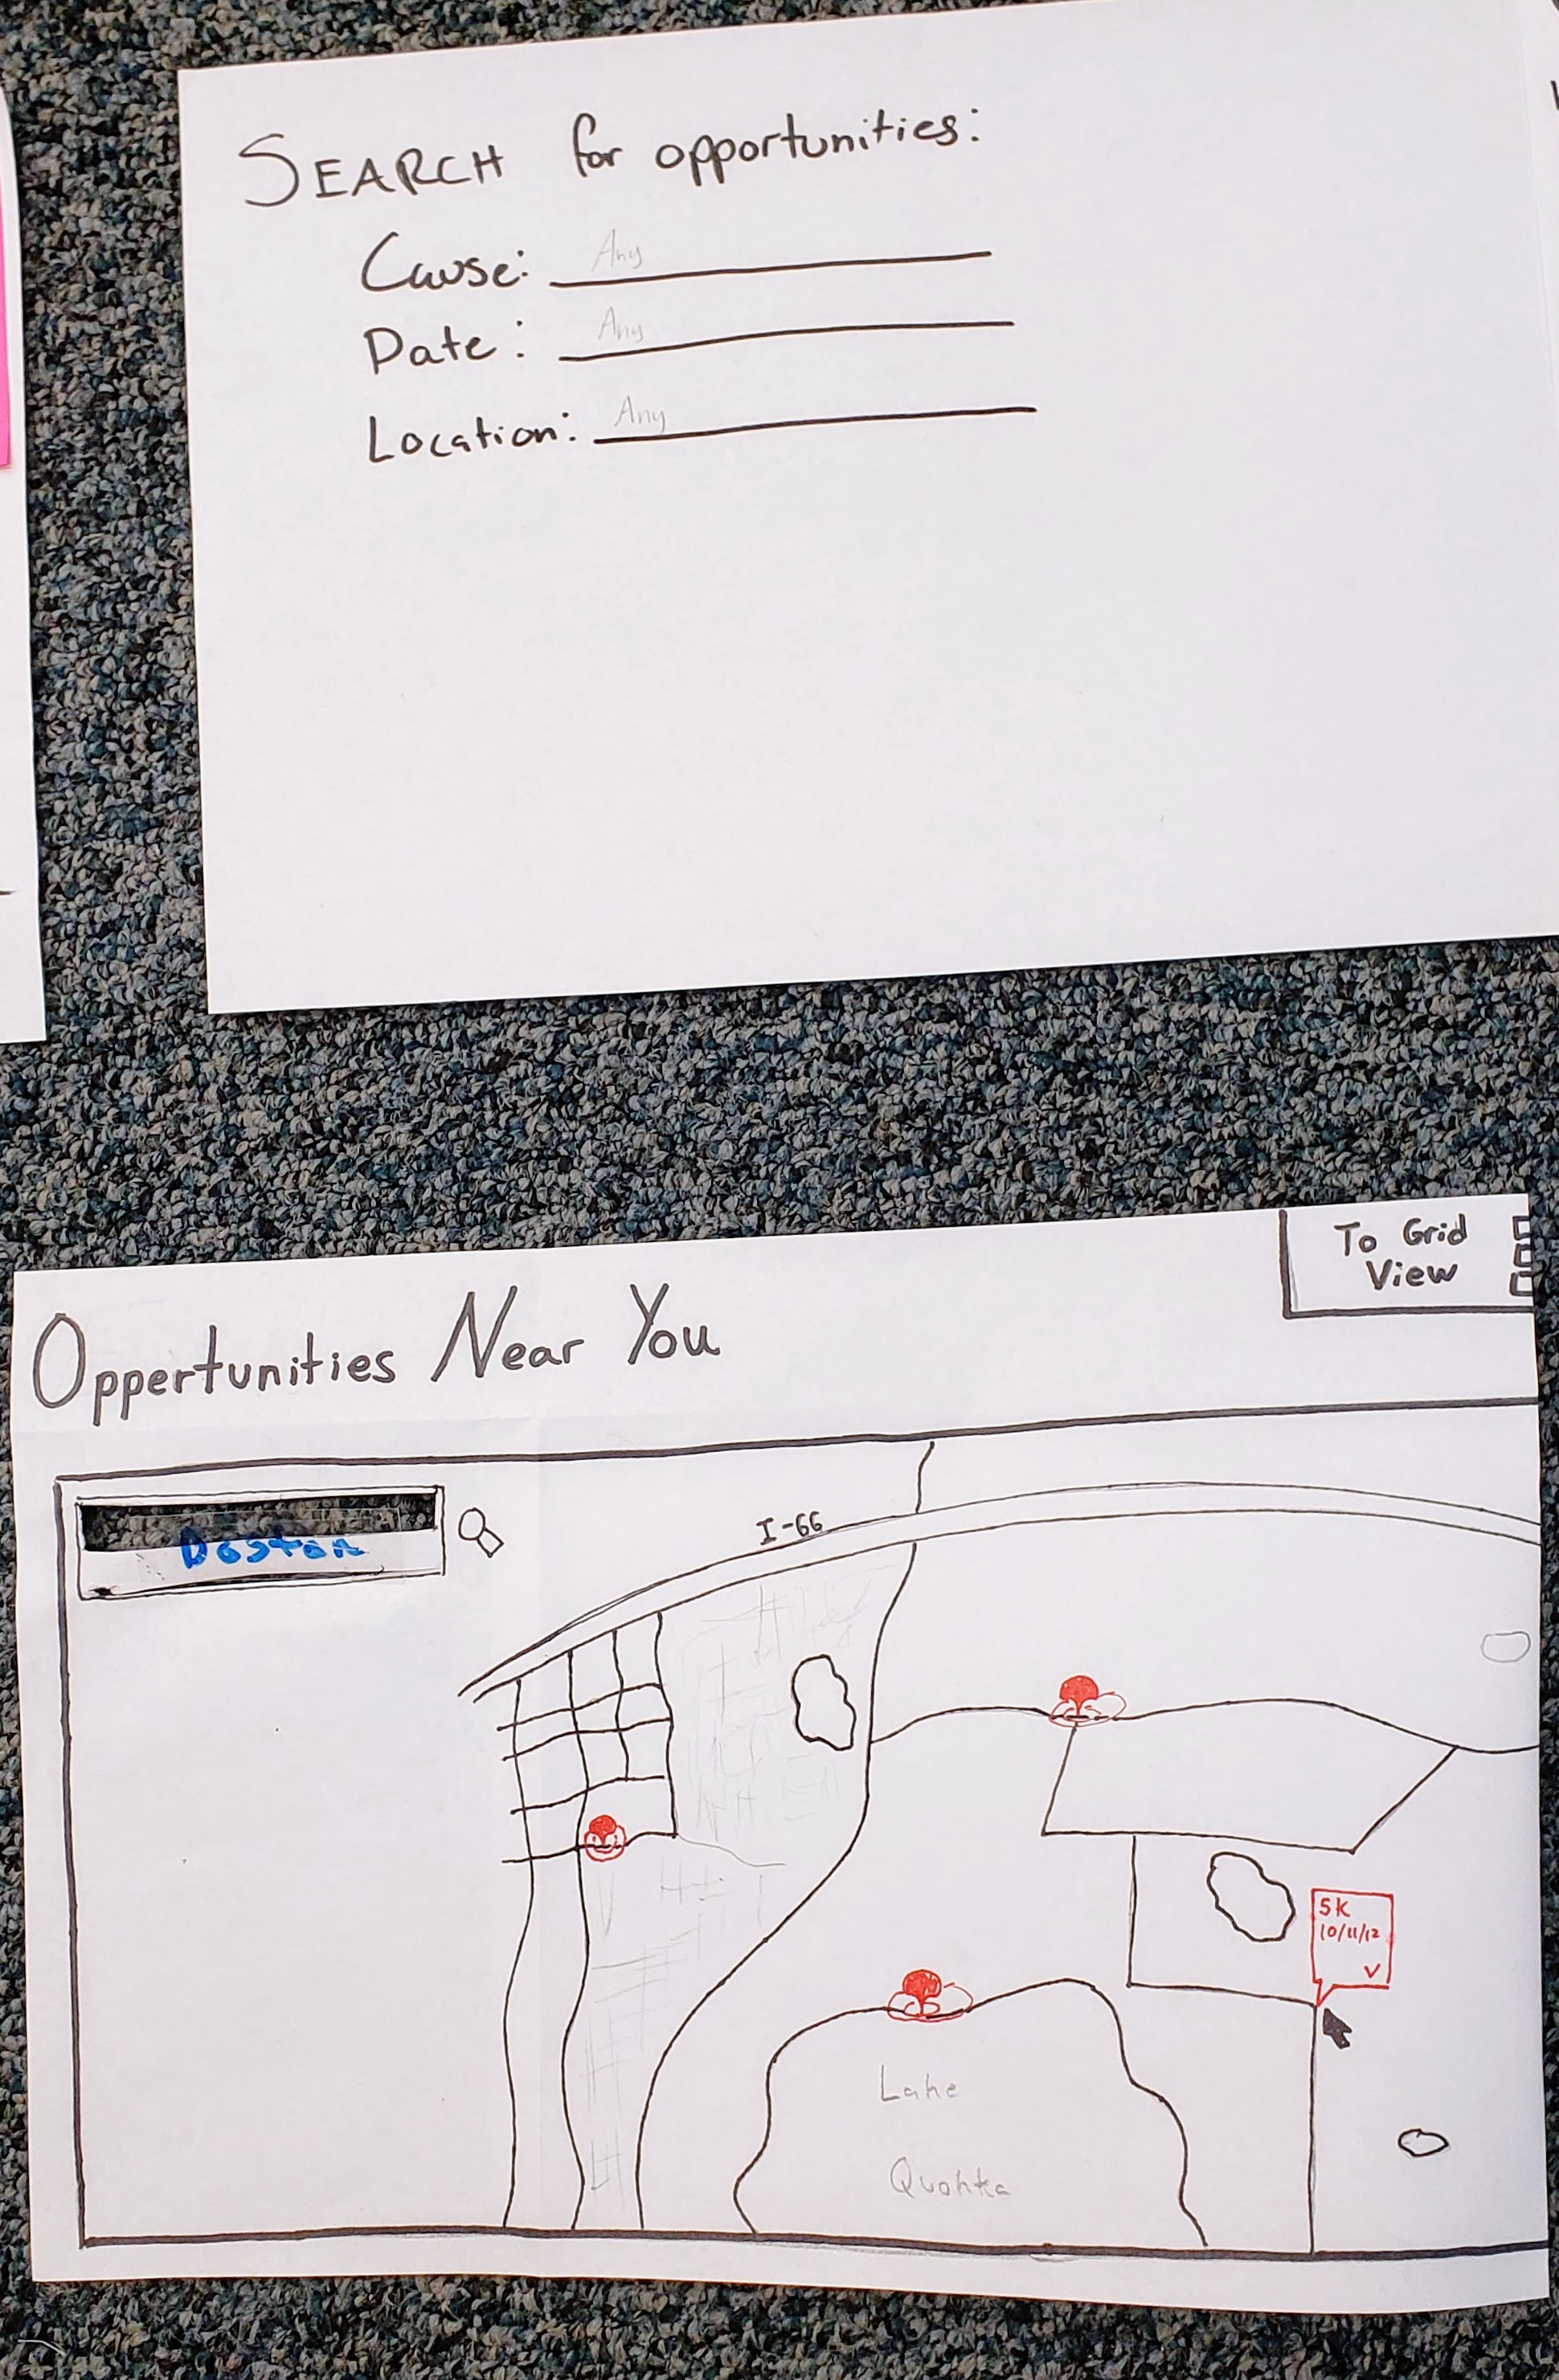 SEARCH for opportunities:
Cause: Any
Date: Any
Location: Any
To Grid
View
Oppertunities Near You
I-66
5k
10/11/12
V
Lake
Quohka